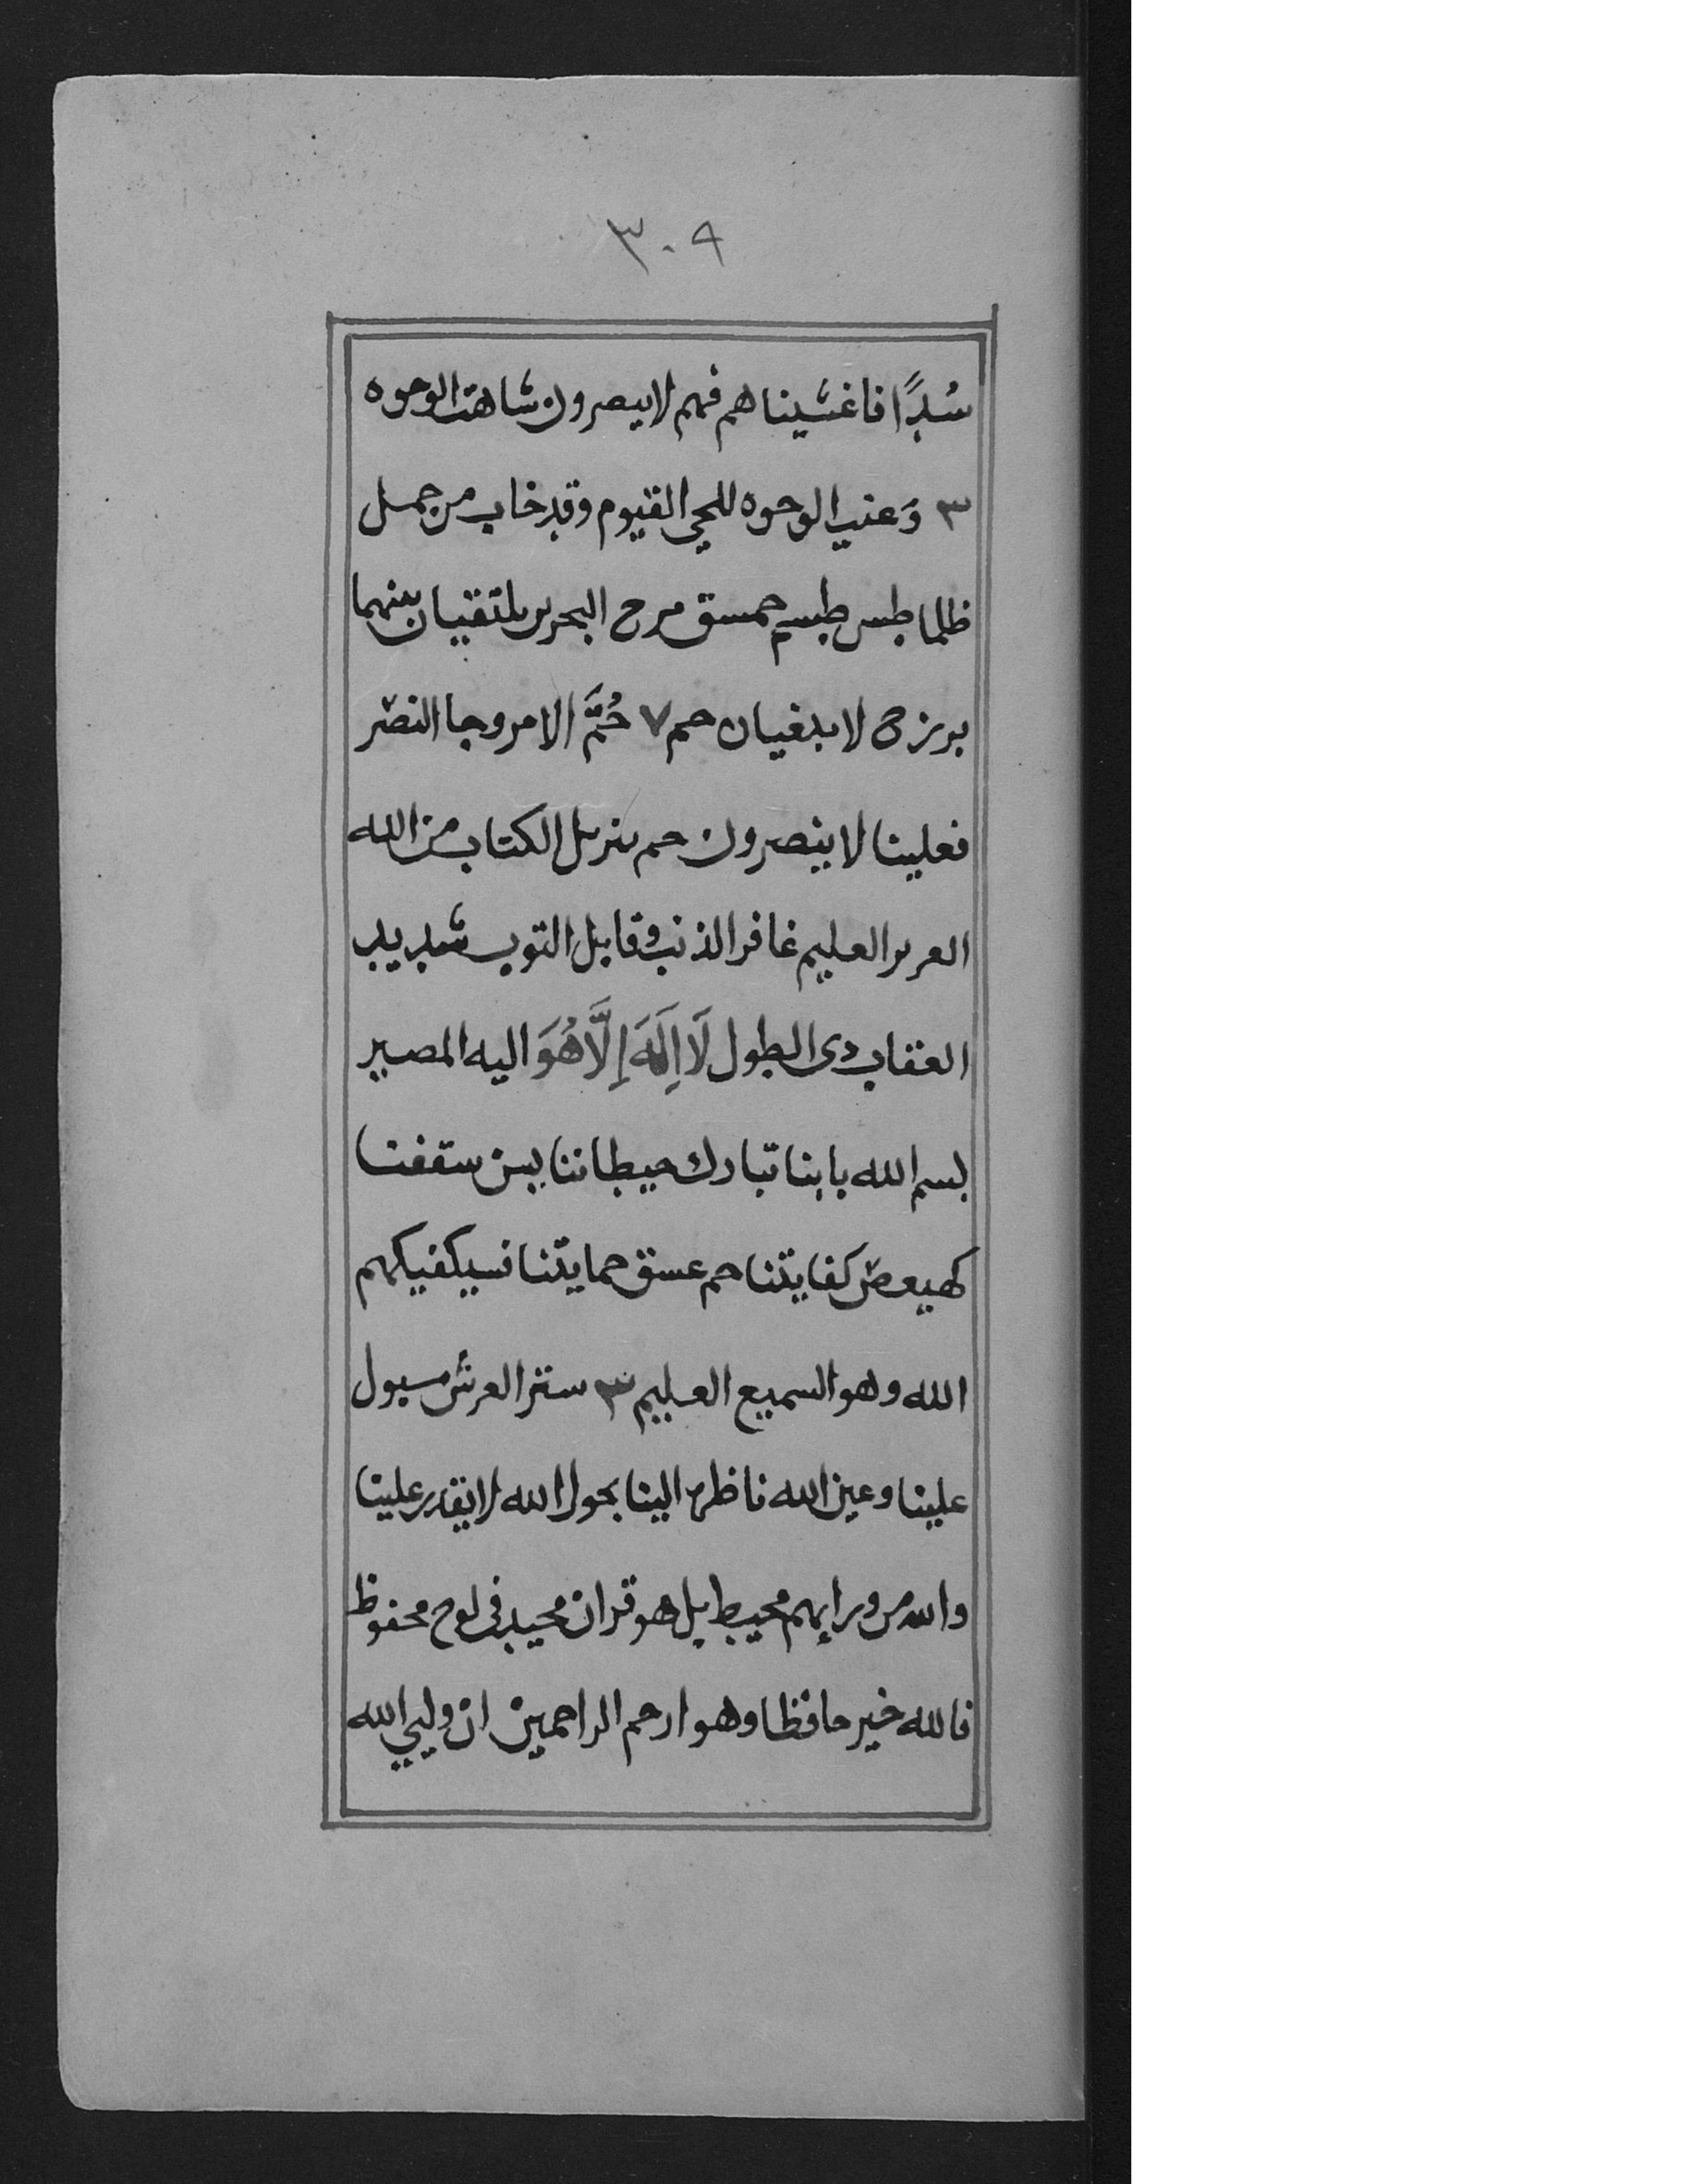 ٣٠٩
سُدًّا فاغشيناهم فهم لا يبصرون شاهت الوجوه
٣ وَعنت الوجوه للحي القيوم وقد خاب من حمل
ظلما طس طسم حمسق مرج البحرين يلتقيان بينهما
برزخ لا يبغيان حم ٧ حُمَّ الامر وجا النصر
فعلينا لا ينصرون حم تنزيل الكتاب من الله
العزيز العليم غافر الذنب وقابل التوب شديد
العقاب ذى الطول لَا اِلَهَ إِلَّا هُوَ اليه المصير
بسم الله بابنا تبارك حيطاننا يس سقفنا
كهيعص كفايتنا حم عسق حمايتنا فسيكفيكهم
الله وهو السميع العليم ٣ ستر العرش مسبول
علينا وعين الله ناظرة الينا بحول الله لا يقدر علينا
والله من ورايهم محيط بل هو قران مجيد فى لوح محفوظ
فالله خير حافظا وهو ارحم الراحمين ان وليي الله